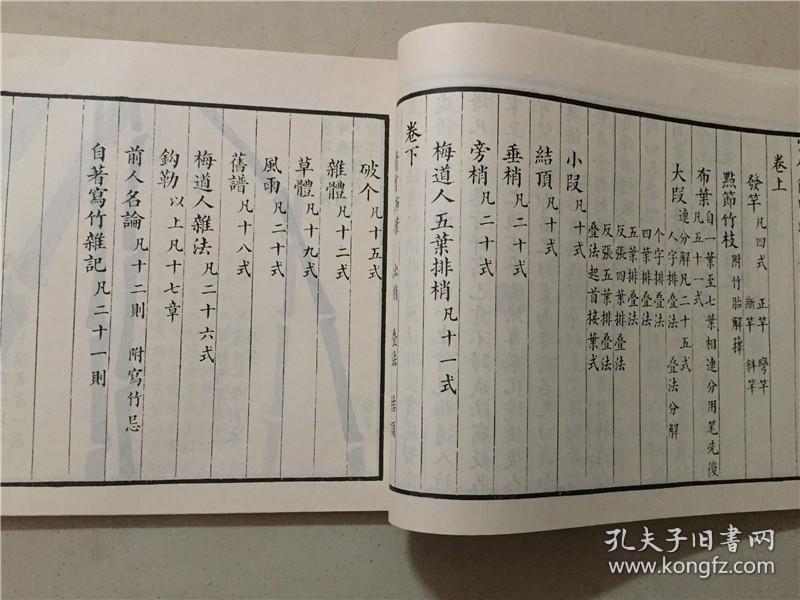 卷上
發竿 凡四式 正竿 彎竿 斷竿 斜竿
點節竹枝 附竹胎解籜
布葉 自一葉至七葉相連分用笔先後 凡五十一式
大段 連分解凡二十五式
人字排疊法 疊法分解
个字排疊法
四葉排疊法
五葉排疊法
反張四葉排疊法
反張五葉排疊法
疊法起首接葉式
小段 凡十式
結頂 凡十式
垂梢 凡二十式
旁梢 凡二十式
梅道人五葉排梢 凡十一式
卷下
疊法 結頂
破个 凡十五式
雜體 凡十二式
草體 凡十九式
風雨 凡二十式
舊譜 凡十八式
梅道人雜法 凡二十六式
鈎勒 以上凡十七章
前人名論 凡十二則 附寫竹忌
自著寫竹雜記 凡二十一則
孔夫子旧書网
www.kongfz.com